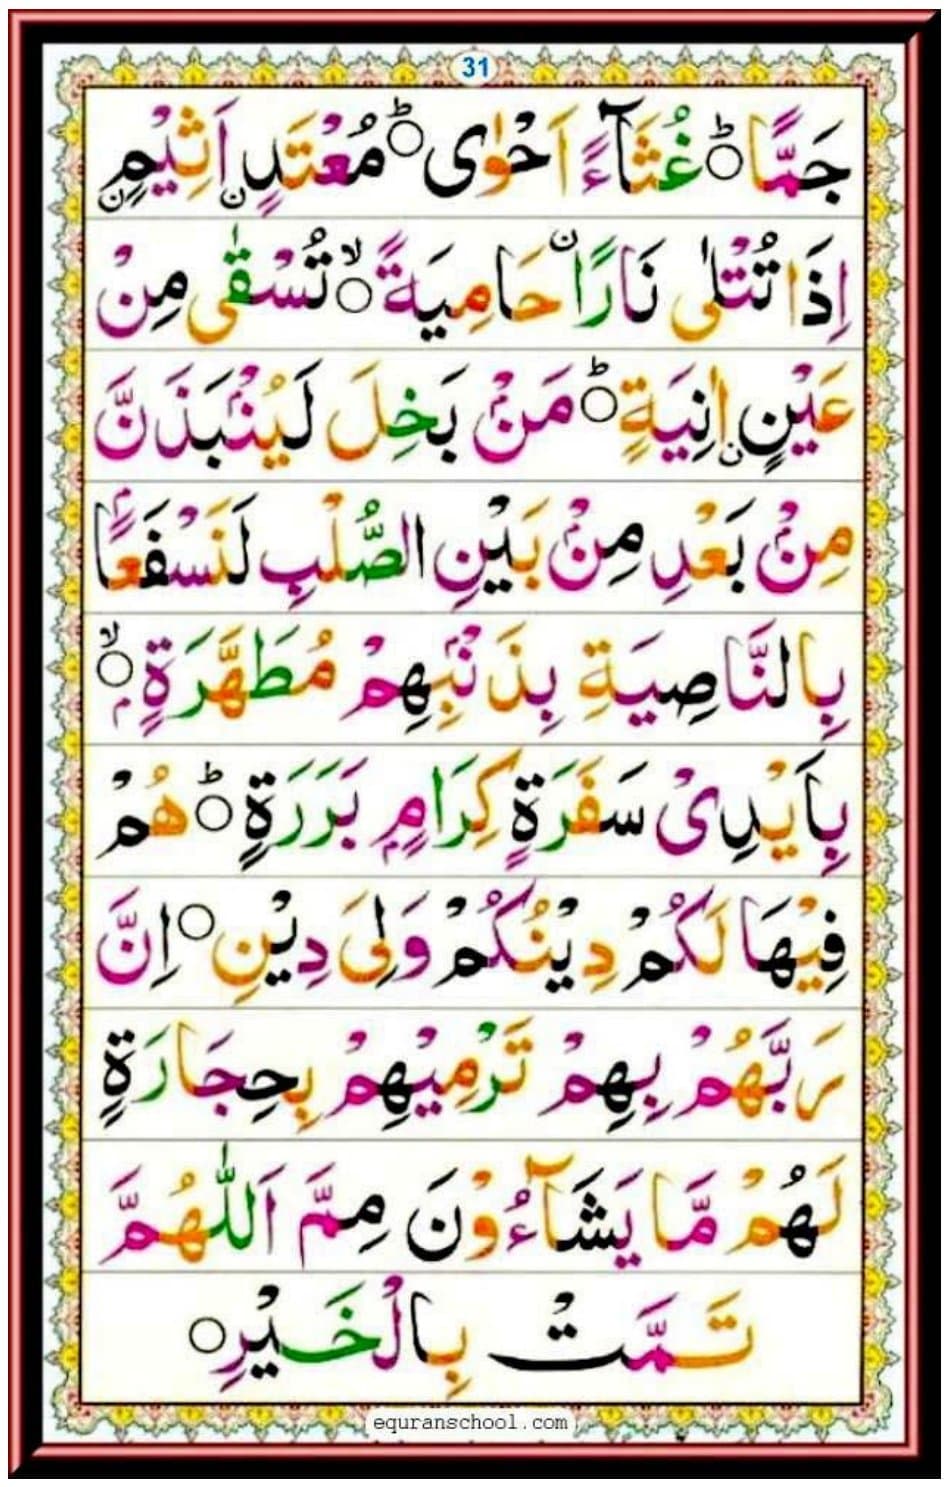 31
جَمًّا ؕ غُثَآءً اَحْوٰى ؕ مُعْتَدٍ ن اَثِيْمٍ ن
اِذَا تُتْلٰى نَارًا ن حَامِيَةً ۙ تُسْقٰى مِنْ
عَيْنٍ ن اٰنِيَةٍ ؕ مَنْۢ بَخِلَ لَيُنْۢبَذَنَّ
مِنْۢ بَعْدِ مِنْۢ بَيْنِ الصُّلْبِ لَنَسْفَعًاۢ
بِالنَّاصِيَةِ بِذَنْۢبِهِمْ مُطَهَّرَةٍۭ ۙ
بِاَيْدِىْ سَفَرَةٍ كِرَامٍۭ بَرَرَةٍ ؕ هُمْ
فِيْهَا لَكُمْ دِيْنُكُمْ وَلِىَ دِيْنِ ○ اِنَّ
رَبَّهُمْ بِهِمْ تَرْمِيْهِمْ بِحِجَارَةٍ
لَهُمْ مَّا يَشَآءُوْنَ مِمَّ اَللّٰهُمَّ
تَمَّتْ بِالْخَيْرِ ○
equranschool.com